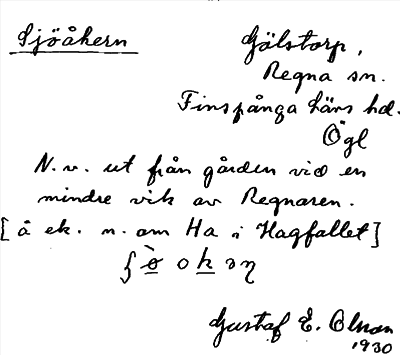 Sjöåkern
Gölstorp,
Regna sn.
Finspånga läns hd.
Ögl
N.v. ut från gården vid en
mindre vik av Regnaren.
[å ek. n. om Ha i Hagfallet]
Gustaf E. Olson
1930